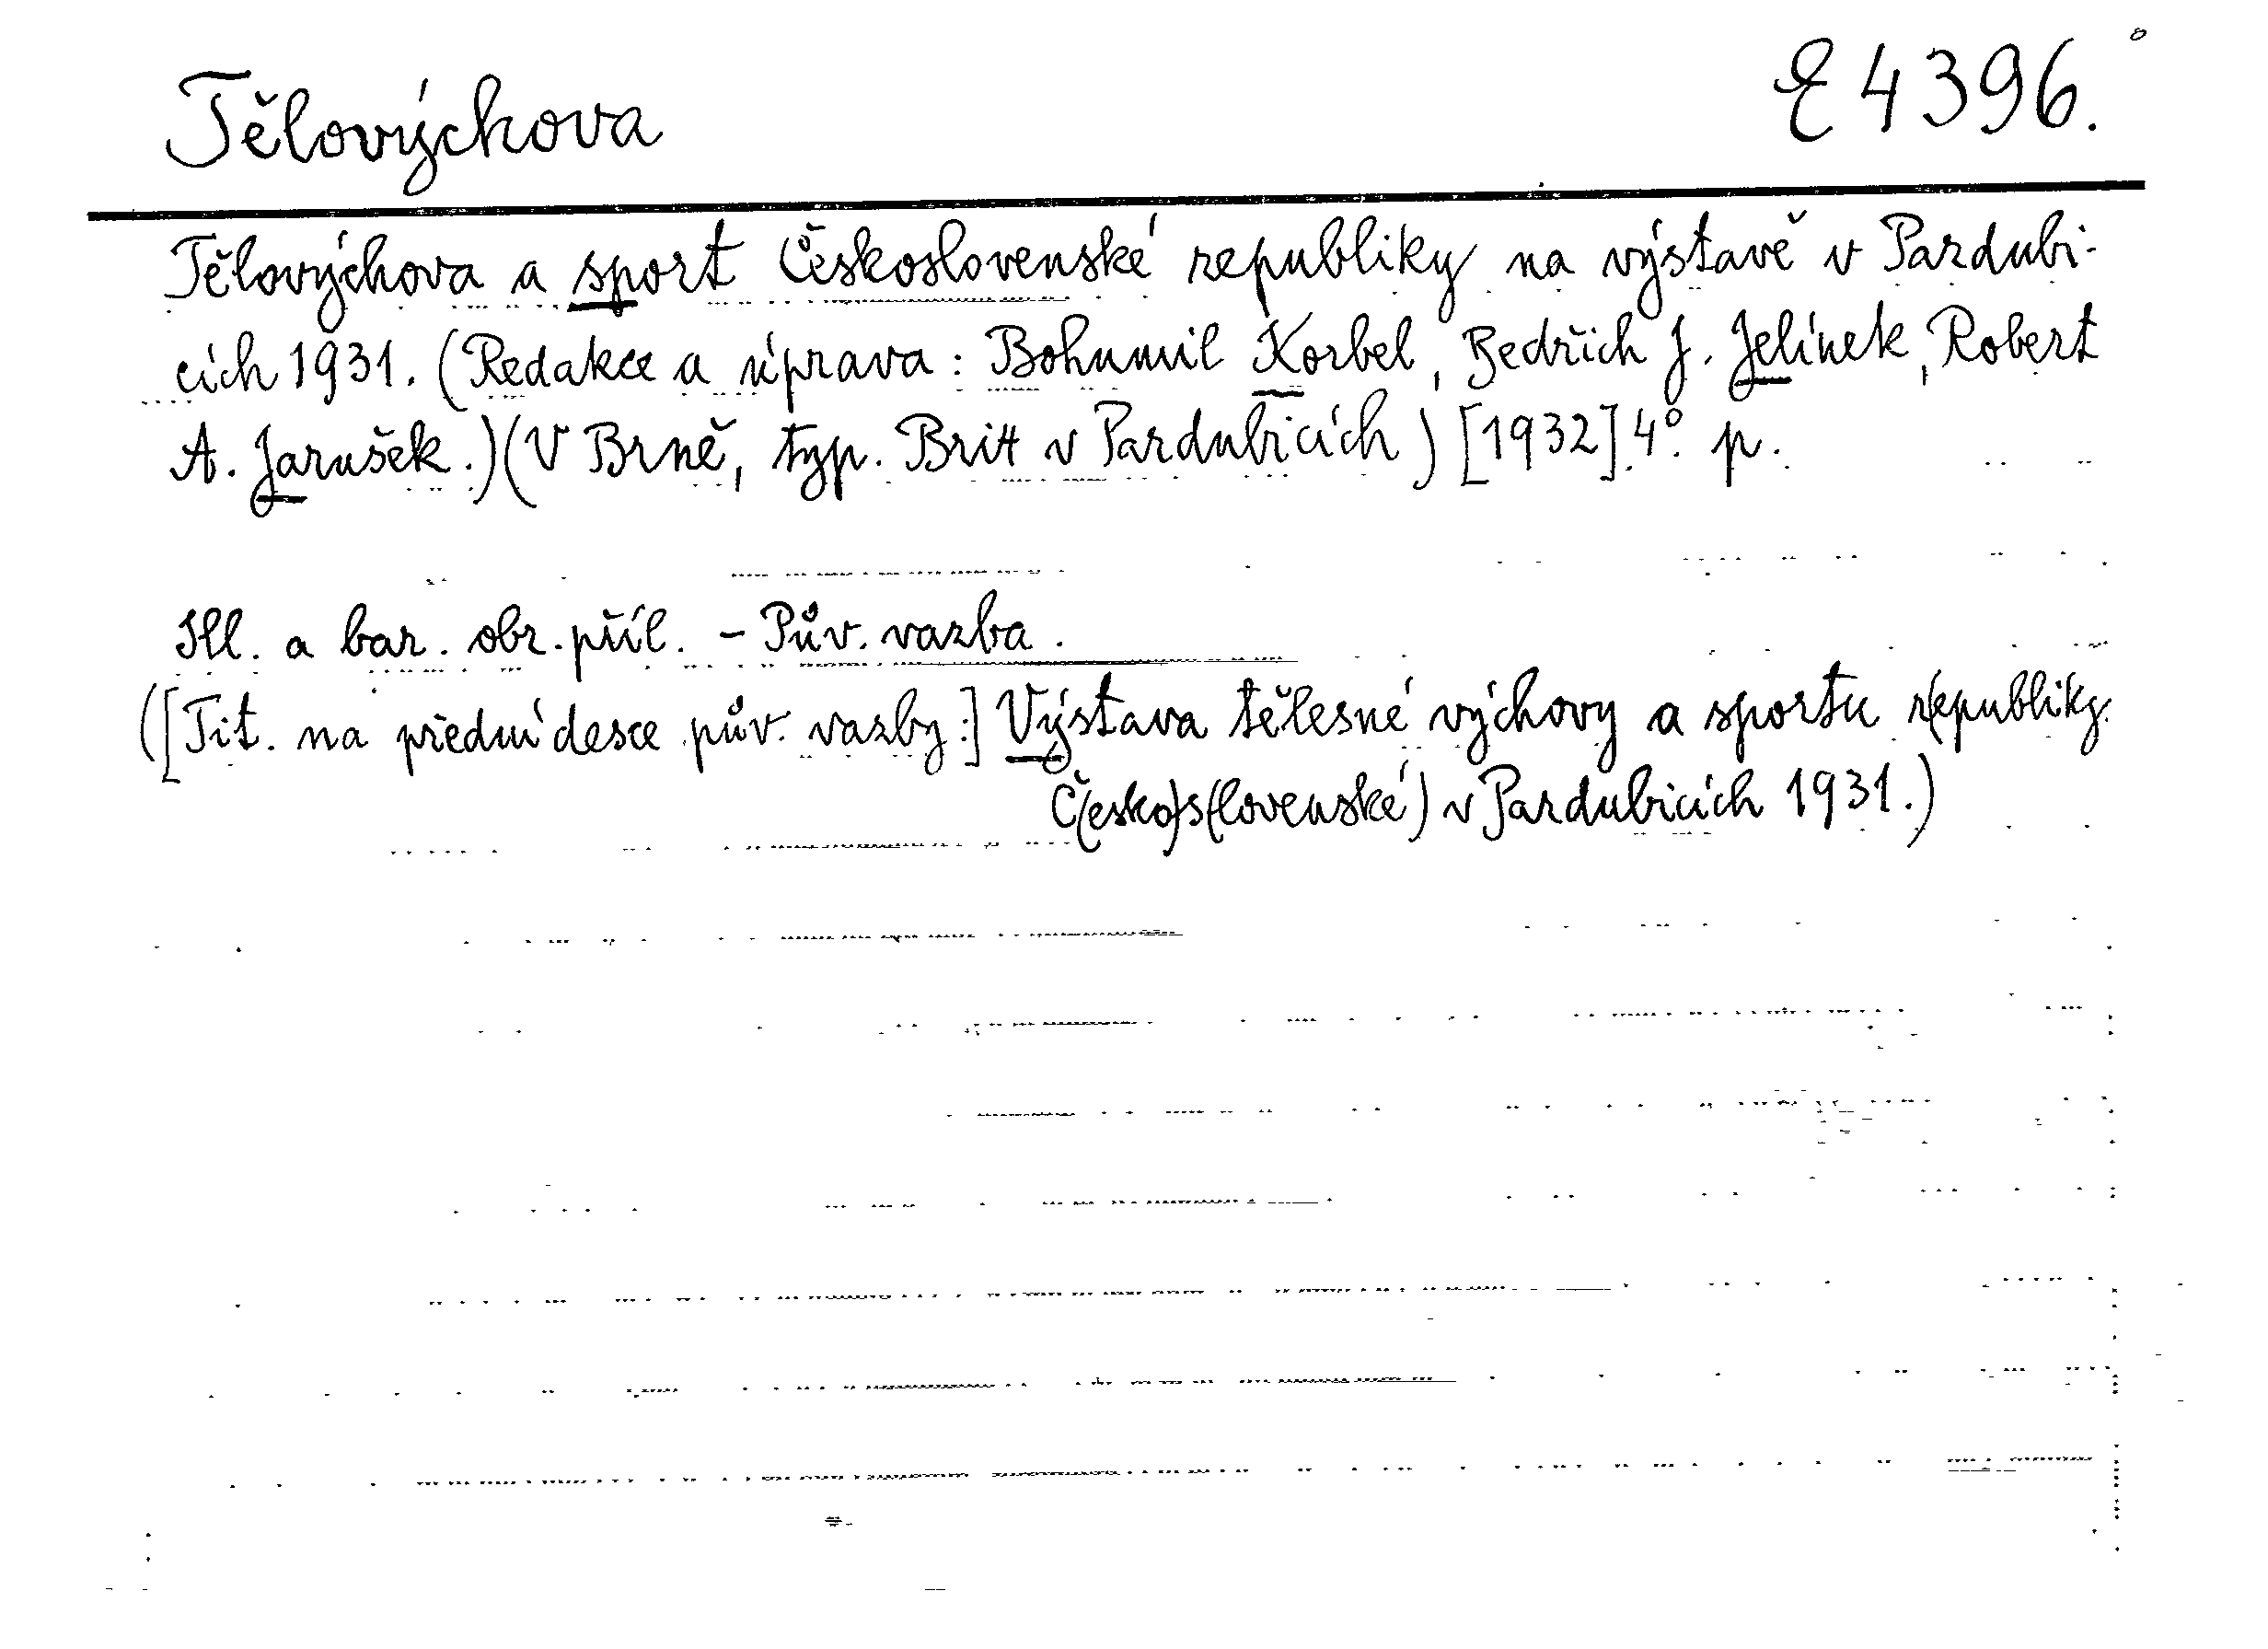 Tělovýchova E 4396.
Tělovýchova a sport Československé republiky na výstavě v Pardubi-
cích 1931. (Redakce a úprava: Bohumil Korbel, Bedřich J. Jelínek, Robert
A. Jarušek.) (V Brně, typ. Britt v Pardubicích) [1932]. 4°. p.
Ill. a bar. obr. příl. - Pův. vazba.
([Tit. na přední desce pův. vazby:] Výstava tělesné výchovy a sportu r(epubliky
Č(esko)s(lovenské) v Pardubicích 1931.)